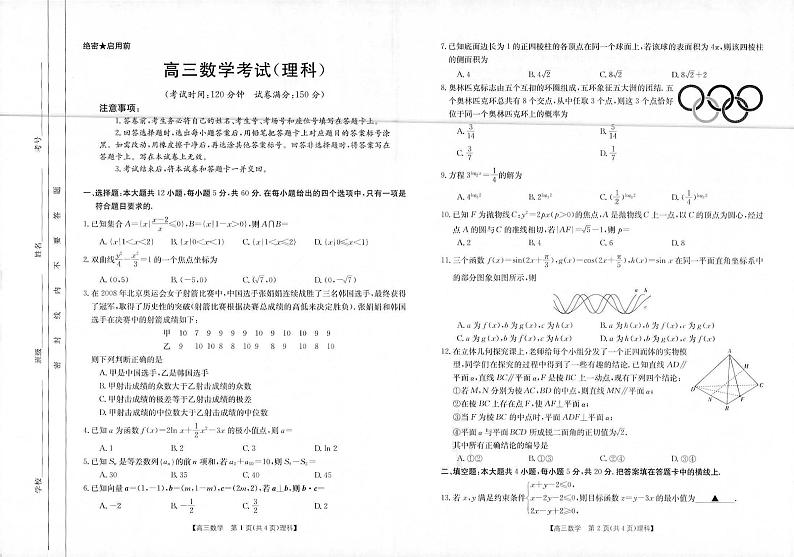 绝密★启用前
高三数学考试(理科)
(考试时间:120分钟 试卷满分:150分)
注意事项:
1.答卷前,考生务必将自己的姓名、考生号、考场号和座位号填写在答题卡上。
2.回答选择题时,选出每小题答案后,用铅笔把答题卡上对应题目的答案标号涂
黑。如需改动,用橡皮擦干净后,再选涂其他答案标号。回答非选择题时,将答案写在
答题卡上。写在本试卷上无效。
3.考试结束后,将本试卷和答题卡一并交回。
一、选择题:本大题共12小题,每小题5分,共60分.在每小题给出的四个选项中,只有一项是
符合题目要求的.
1.已知集合A={x|(x-2)/x≤0},B={x|1-x>0},则A∩B=
A.{x|1<x<2} B.{x|0<x<1} C.{x|1<x≤2} D.{x|0≤x<1}
2.双曲线y²/4-x²/3=1的一个焦点坐标为
A.(0,5) B.(-5,0) C.(√7,0) D.(0,-√7)
3.在2008年北京奥运会女子射箭比赛中,中国选手张娟娟连续战胜了三名韩国选手,最终获得
了冠军,取得了历史性的突破(射箭比赛根据决赛总成绩的高低来决定胜负).张娟娟和韩国
选手在决赛中的射箭成绩如下:
甲 10 7 9 9 9 9 10 9 10 10 9 9
乙 9 10 8 10 8 8 10 9 9 10 8 10
则下列判断正确的是
A.甲是中国选手,乙是韩国选手
B.甲射击成绩的众数大于乙射击成绩的众数
C.甲射击成绩的极差等于乙射击成绩的极差
D.甲射击成绩的中位数大于乙射击成绩的中位数
4.已知a为函数f(x)=2ln x+½x²-3x的极小值点,则a=
A.1 B.2 C.3 D.ln 2
5.已知Sₙ是等差数列{aₙ}的前n项和,若a₂+a₁₀=10,则S₉-S₂=
A.30 B.35 C.40 D.45
6.已知向量a=(1,-1),b=(m,1-m),c=(2m,2),若a⊥b,则b·c=
A.-2 B.-1 C.1 D.2
【高三数学 第1页(共4页)理科】
7.已知底面边长为1的正四棱柱的各顶点在同一个球面上,若该球的表面积为4π,则该四棱柱
的侧面积为
A.4 B.4√2 C.8√2 D.8√2+2
8.奥林匹克标志由五个互扣的环圈组成,五环象征五大洲的团结.五
个奥林匹克环总共有8个交点,从中任取3个点,则这3个点恰好
位于同一个奥林匹克环上的概率为
A.3/14 B.5/14
C.3/7 D.1/7
9.方程
的解为
10.已知F为抛物线C:y²=2px(p>0)的焦点,A是抛物线C上一点,以C的顶点为圆心,经过
点A的圆与C的准线相切,若|AF|=√5-1,则p=
A.2 B.4 C.6 D.8
11.三个函数f(x)=sin(2x+π/3),g(x)=cos(2x+π/5),h(x)=sin x在同一平面直角坐标系中
的部分图象如图所示,则
a b
c
A.a为f(x),b为g(x),c为h(x) B.a为h(x),b为f(x),c为g(x)
C.a为g(x),b为f(x),c为h(x) D.a为h(x),b为g(x),c为f(x)
12.在立体几何探究课上,老师给每个小组分发了一个正四面体的实物模
型,同学们在探究的过程中得到了一些有趣的结论.已知直线AD∥
平面α,直线BC∥平面α,F是棱BC上一动点,现有下列四个结论:
①若M,N分别为棱AC,BD的中点,则直线MN∥平面α;
②在棱BC上存在点F,使AF⊥平面α;
③当F为棱BC的中点时,平面ADF⊥平面α;
④平面α与平面BCD所成锐二面角的正切值为√2.
其中所有正确结论的编号是
A.①② B.①③ C.③④ D.②④
A
M
B
C
N
D
二、填空题:本大题共4小题,每小题5分,共20分.把答案填在答题卡中的横线上.
13.若x,y满足约束条件{x+y-2≤0, x-2y-2≤0, 2x-y+2≥0,则目标函数z=y-3x的最小值为 ▲ .
【高三数学 第2页(共4页)理科】
学校
班级
姓名
考号
密 封 线 内 不 要 答 题